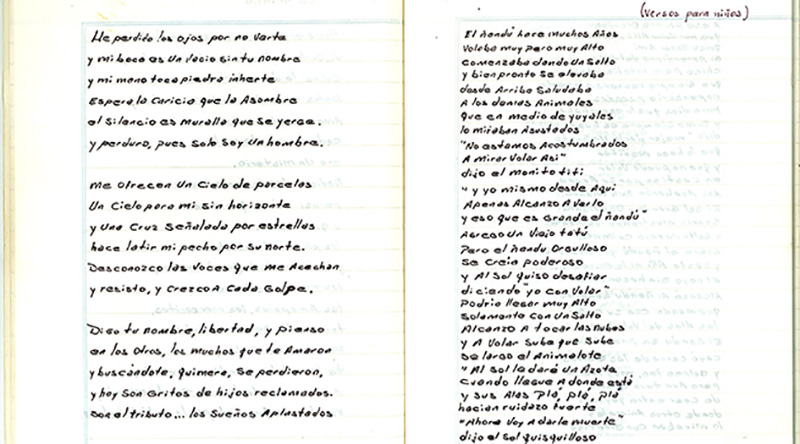 He perdido los ojos por no verte
y mi boca es un vacio sin tu nombre
y mi mano toca piedra inherte
Espera la Caricia que la Asombre
el Silencio es Muralla que se yerge.
y perduro, pues solo soy un hombre.
me ofrecen un Cielo de parcelas
Un Cielo para mi sin horizonte
y Una Cruz Señalada por estrellas
hace latir mi pecho por su norte.
Desconozco las voces que me Acechan
y resisto, y Crezco A Cada Golpe.
Digo tu nombre, libertad, y pienso
en los Otros, los muchos que te Amaron
y buscándote, quimera, se perdieron,
y hoy son Gritos de hijos reclamados.
son el tributo... los Sueños Aplastados
(Versos para niños)
El ñandú hace muchos Años
Volaba muy pero muy Alto
Comenzaba dando un Salto
y bien pronto se elevaba
desde Arriba Saludaba
A los demas Animales
que en medio de yuyales
lo miraban Asustados
"No estamos Acostumbrados
A mirar Volar Asi"
dijo el monito titi
"y yo mismo desde Aqui
Apenas Alcanzo A Verlo
y eso que es Grande el ñandú"
Agrego Un Viejo tatú
Pero el ñandu Orgulloso
Se Creia poderoso
y Al Sol quiso desafiar
diciendo "yo con Volar"
Podria llegar muy Alto
Solamente con Un Salto
Alcanzo A tocar las Nubes
y A Volar Sube que Sube
Se largo el Animalote
"Al Sol le daré un Azote
Cuando llegue A donde está
y sus Alas plá, plá, plá
hacian ruidazo fuerte
"Ahora Voy A darle muerte"
dijo el Sol quisquilloso